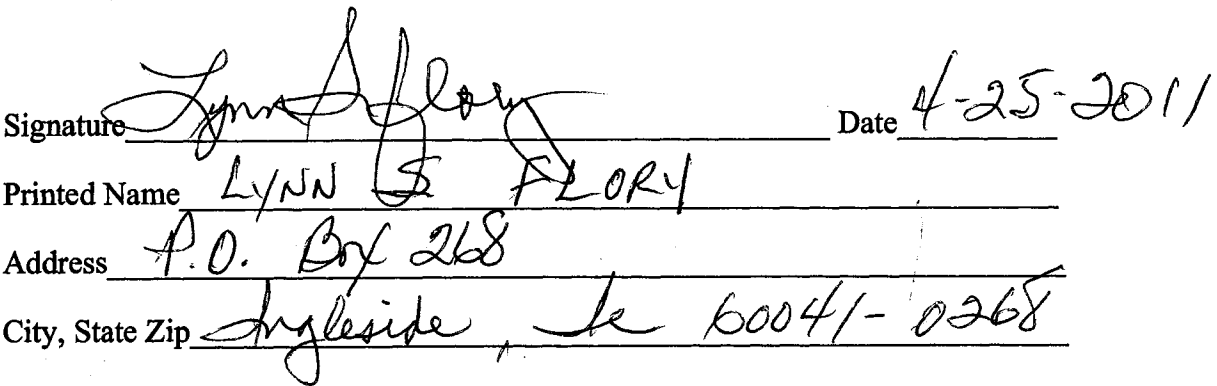 Signature Lynn S Flory Date 4-25-2011
Printed Name LYNN S FLORY
Address P.O. Box 268
City, State Zip Ingleside, Il 60041-0268